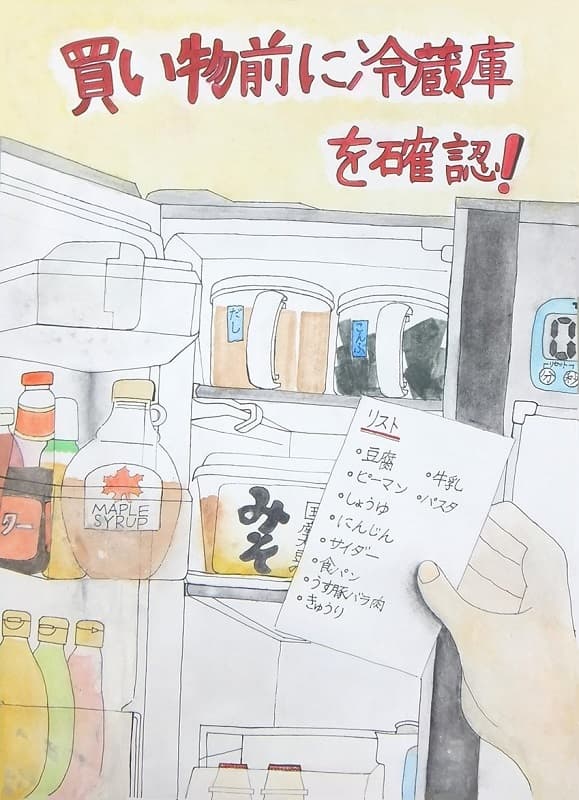 買い物前に冷蔵庫
を確認!
だし
こんぶ
リスト
・豆腐
・ピーマン
・しょうゆ
・にんじん
・サイダー
・食パン
・うす豚バラ肉
・きゅうり
・牛乳
・パスタ
MAPLE
SYRUP
ター
みそ
国産大豆
0
リセット
分
秒